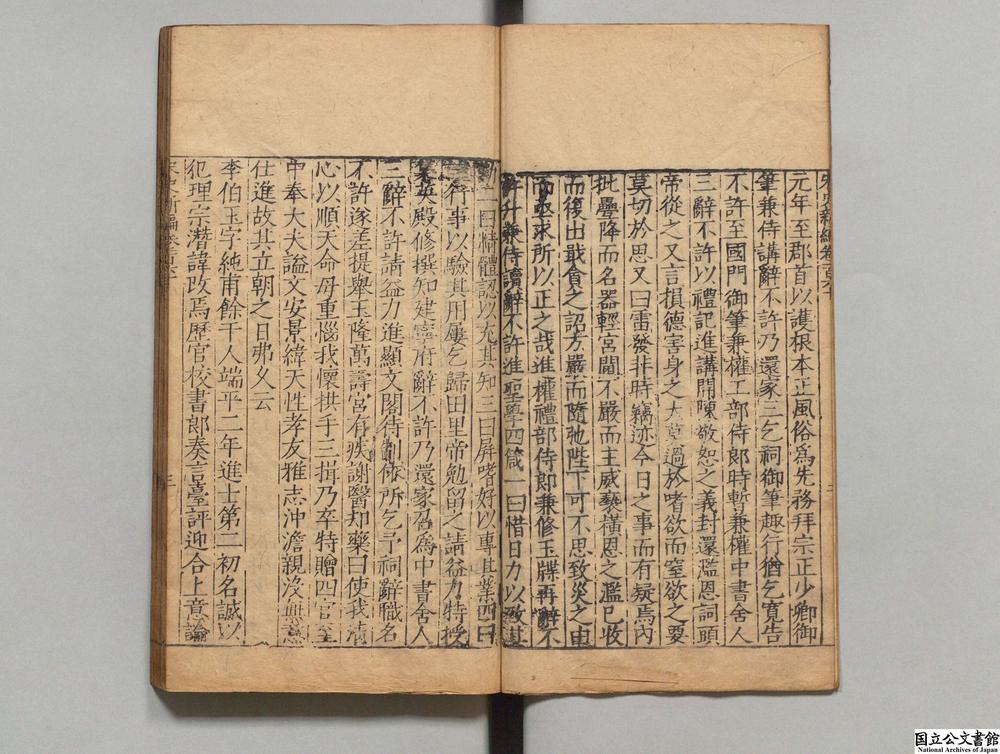 宋史新編卷一百六十
元年至郡首以護根本正風俗爲先務拜宗正少卿御
筆兼侍講辭不許乃還家三乞祠御筆趣行猶乞寬告
不許至國門御筆兼權工部侍郎時暫兼權中書舍人
三辭不許以禮記進講開陳敬恕之義封還濫恩詞頭
帝從之又言損德害身之大莫過於嗜欲而窒欲之要
莫切於思又曰雷發非時竊迹今日之事而有疑焉内
批疊降而名器輕宮閫不嚴而主威褻橫恩之濫已收
而復出戢貪之詔方嚴而隨弛陛下可不思致災之由
而亟求所以正之哉進權禮部侍郎兼修玉牒再辭不
許升兼侍讀辭不許進聖學四箴一曰惜日力以致其
勤二曰精體認以充其知三曰屏嗜好以專其業四曰
行事以驗其用屢乞歸田里帝勉留之請益力特授
集英殿修撰知建寧府辭不許乃還家召爲中書舍人
三辭不許請益力進顯文閣待制依所乞予祠辭職名
不許遂差提舉玉隆萬壽宮有疾謝醫却藥曰使我清
心以順天命毋重惱我懷拱手三揖乃卒特贈四官至
中奉大夫謚文安景緯天性孝友雅志沖澹親沒無意
仕進故其立朝之日弗久云
李伯玉字純甫餘干人端平二年進士第二初名誠以
犯理宗潛諱改焉歷官校書郎奏言臺評迎合上意論
宋史新編卷一百六十
三
国立公文書館
National Archives of Japan